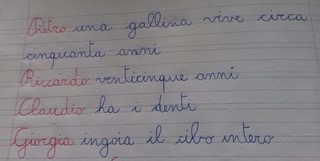 Pietro una gallina vive circa
cinquanta anni
Riccardo venticinque anni
Claudio ha i denti
Giorgia ingoia il cibo intero